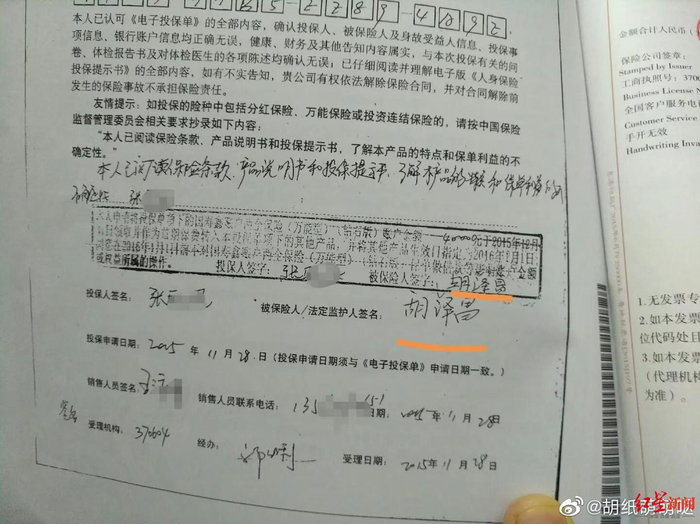 5 2 2 8 9 - 4 8 9 2
本人已认可《电子投保单》的全部内容，确认投保人、被保险人及身故受益人信息、投保事
项信息、银行账户信息均正确无误，健康、财务及其他告知内容属实，与本次投保有关的问
卷、体检报告书及对体检医生的各项陈述均确认无误；已仔细阅读并理解电子版《人身保险
投保提示书》的全部内容，如有不实告知，贵公司有权依法解除保险合同，并对合同解除前
发生的保险事故不承担保险责任。
友情提示：如投保的险种中包括分红保险、万能保险或投资连结保险的，请按中国保险
监督管理委员会相关要求抄录如下内容：
“本人已阅读保险条款、产品说明书和投保提示书，了解本产品的特点和保单利益的不
确定性。”
本人已阅读保险条款、产品说明书和投保提示书，了解本产品的特点和保单利益的不
确定性 张
本人申请将投保单项下的国寿鑫账户两全保险（万能型）（钻石版）账户金额 40000元于2015年12月
投保人签字：张 被保险人签字：胡泽昌
或权益所属的操作。
投保人签名：张
被保险人/法定监护人签名：胡泽昌
投保申请日期：2015年11月28日（投保申请日期须与《电子投保单》申请日期一致。）
销售人员签名：
销售人员联系电话：135 151
日期：2015年11月28日
受理机构：370604
经办：
受理日期：2015年11月28日
金额合计人民币（
保险公司签章：
Stamped by Issuer
工商执照号：3700
Business License N
全国客户服务电
Customer Service
手开无效
Handwriting Inva
1. 无发票专
2. 如本发票
位代码处目
3. 如本发票
（代理机构
为准）。
红星新闻
@胡纸萌萌哒